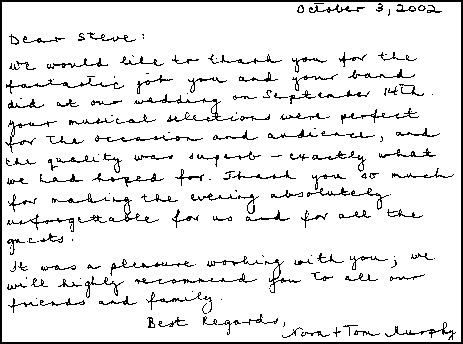 October 3, 2002
Dear Steve:
We would like to thank you for the
fantastic job you and your band
did at our wedding on September 14th.
Your musical selections were perfect
for the occasion and audience, and
the quality was superb - exactly what
we had hoped for. Thank you so much
for making the evening absolutely
unforgettable for us and for all the
guests.
It was a pleasure working with you; we
will highly recommend you to all our
friends and family.
Best Regards,
Nora + Tom Murphy